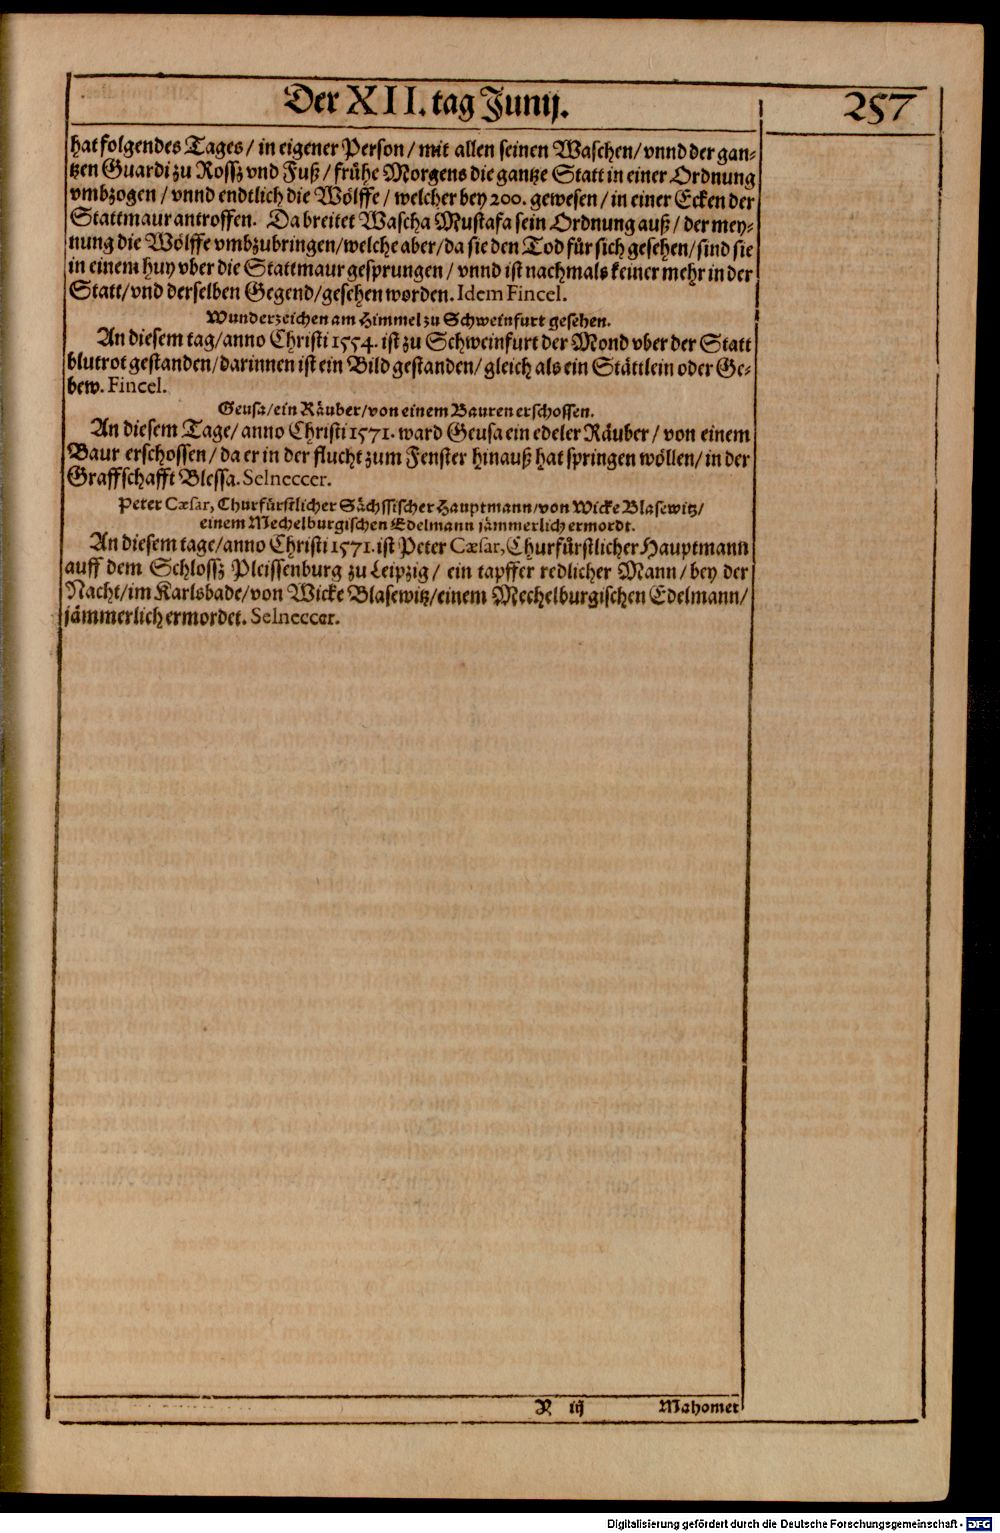 Der XII. tag Junij.
257
hat folgendes Tages / in eigener Person / mit allen seinen Waschen / vnnd der gan-
tzen Guardi zu Rossz vnd Fuß / frühe Morgens die gantze Statt in einer Ordnung
vmbzogen / vnnd endtlich die Wölffe / welcher bey 200. gewesen / in einer Ecken der
Stattmaur antroffen. Da breitet Wascha Mustafa sein Ordnung auß / der mey-
nung die Wölffe vmbzubringen / welche aber / da sie den Tod für sich gesehen / sind sie
in einem huy vber die Stattmaur gesprungen / vnnd ist nachmals keiner mehr in der
Statt / vnd derselben Gegend / gesehen worden. Idem Fincel.
Wunderzeichen am Himmel zu Schweinfurt gesehen.
An diesem tag / anno Christi 1554. ist zu Schweinfurt der Mond vber der Statt
blutrot gestanden / darinnen ist ein Bild gestanden / gleich als ein Stättlein oder Ge-
bew. Fincel.
Geusa / ein Räuber / von einem Bauren erschossen.
An diesem Tage / anno Christi 1571. ward Geusa ein edeler Räuber / von einem
Baur erschossen / da er in der flucht zum Fenster hinauß hat springen wöllen / in der
Graffschafft Blessa. Selneccer.
Peter Cæsar, Churfürstlicher Sächssischer Hauptmann / von Wicke Blasewitz /
einem Mechelburgischen Edelmann jämmerlich ermordt.
An diesem tage / anno Christi 1571. ist Peter Cæsar, Churfürstlicher Hauptmann
auff dem Schlossz Pleissenburg zu Leipzig / ein tapffer redlicher Mann / bey der
Nacht / im Karlsbade / von Wicke Blasewitz / einem Mechelburgischen Edelmann /
jämmerlich ermordet. Selneccer.
R iij
Mahomet
Digitalisierung gefördert durch die Deutsche Forschungsgemeinschaft - DFG